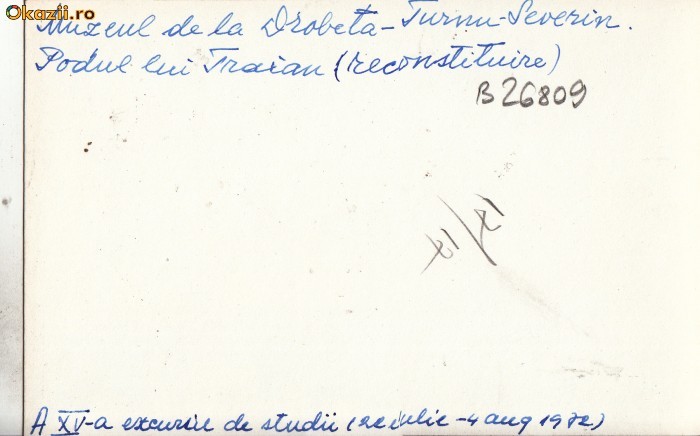 Okazii.ro
Muzeul de la Drobeta-Turnu-Severin.
Podul lui Traian (reconstituire)
B 26809
A XV-a excursie de studii ( iulie - 4 aug 1972)